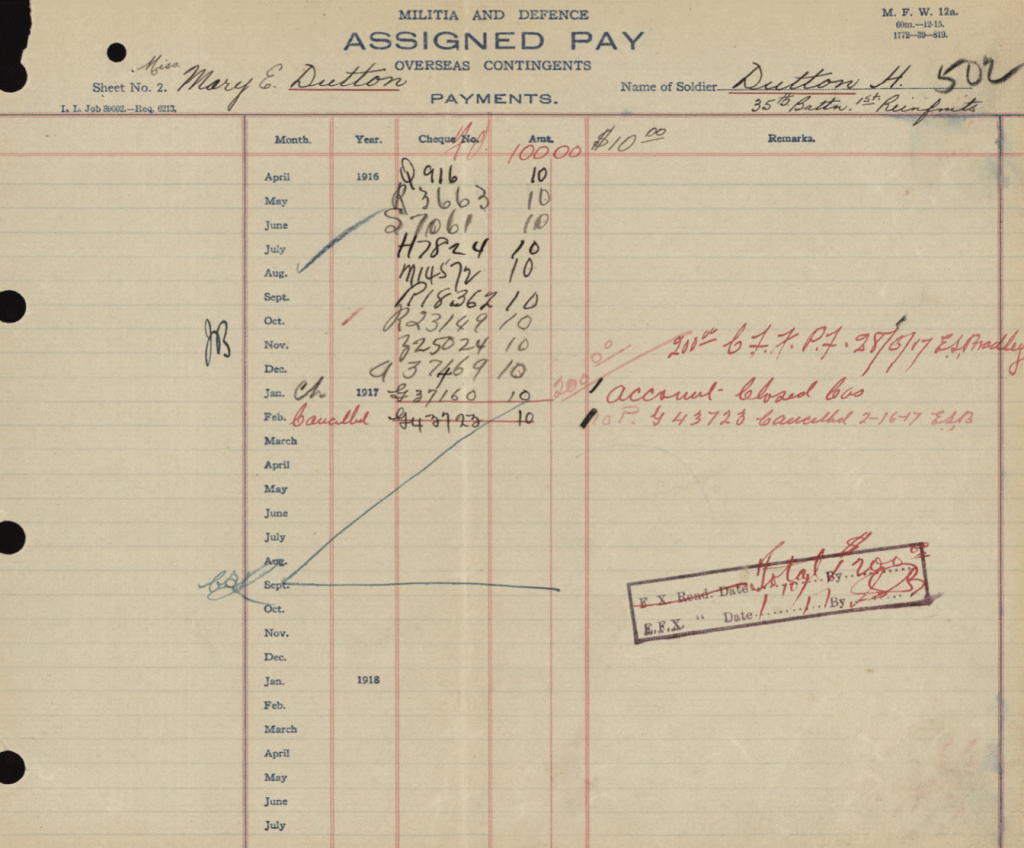 MILITIA AND DEFENCE
M. F. W. 12a.
60m.—12-15.
1772—39—819.
ASSIGNED PAY
OVERSEAS CONTINGENTS
Miss
Sheet No. 2. Mary E. Dutton
Name of Soldier Dutton H. 502
L. L. Job 89002.—Req. 6213.
PAYMENTS.
35th Battn. 1st Reinfmts
Month. Year. Cheque No. Amt. $10 00 Remarks.
100 00
April 1916 Q 916 10
May R 3663 10
June S 7061 10
July H7824 10
Aug. M14572 10
Sept. P18362 10
Oct. R23149 10
JB Nov. Z25024 10 200 00 C.F.F.P.F. 28/5/17 E.S. Bradley
Dec. A 37469 10
Jan. Ch 1917 G 37160 10 200 00 Account Closed Cas
Feb. Cancelled G43723 10 P. G 43723 Cancelled 2-16-17 ESB
March
April
May
June
July
Aug.
Sept.
Oct.
Nov.
Dec.
Jan. 1918
Feb.
March
April
May
June
July
E. X. Rend. Date Total $200 00 By
E.F.X. " Date 1/10/17 By ESB